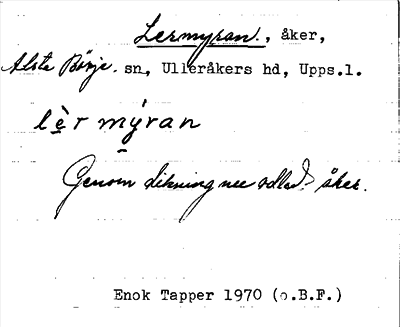 Lermyran., åker,
Alsta Börje. sn, Ulleråkers hd, Upps.l.
lè̱r mýran
Genom dikning odlad åker.
Enok Tapper 1970 (o.B.F.)